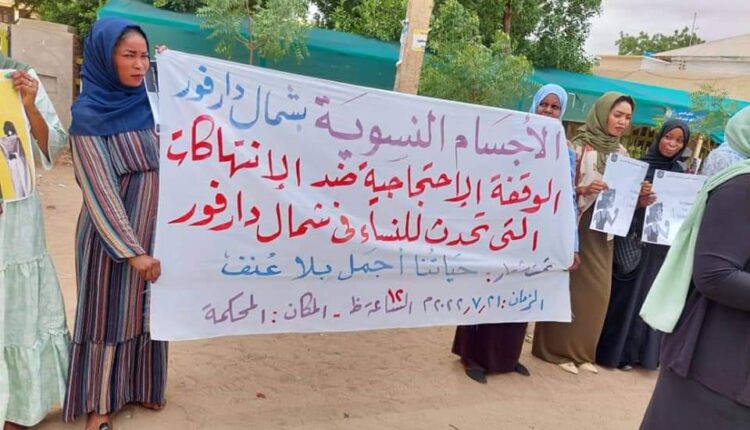 الأجسام النسوية بشمال دارفور
الوقفة الإحتجاجية ضد الإنتهاكات
التى تحدث للنساء فى شمال دارفور
تحت شعار: حياتنا أجمل بلا عنف
الزمان: ٢٠٢٢٫٧٫٢١م الساعة ١٢ ظ - المكان: المحكمة